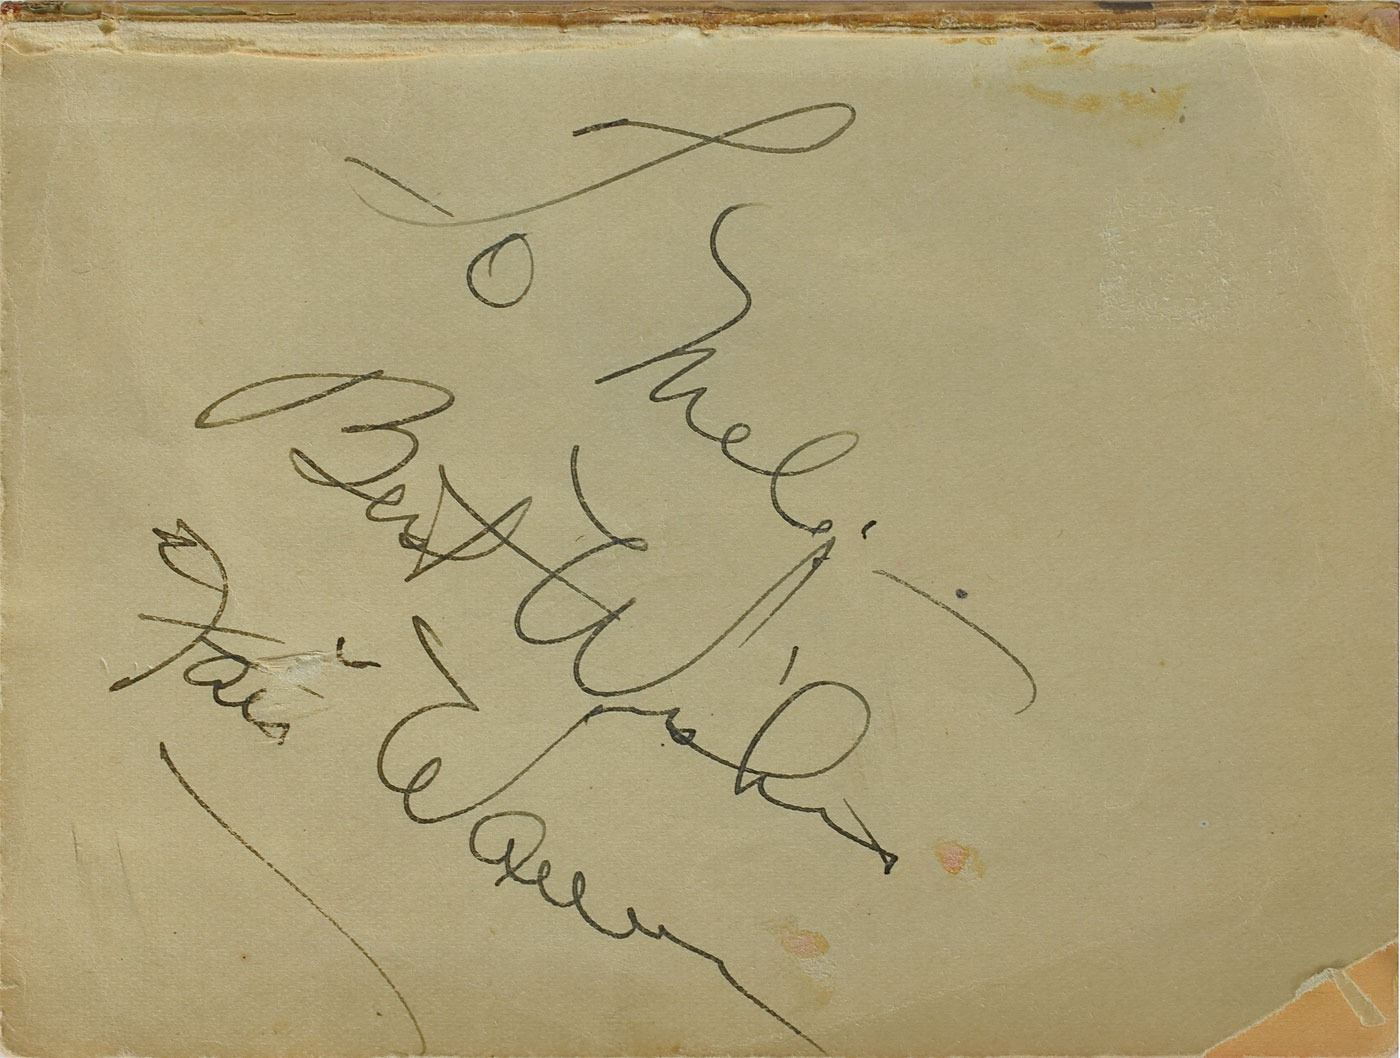 To
Best Wishes
Fats Waller